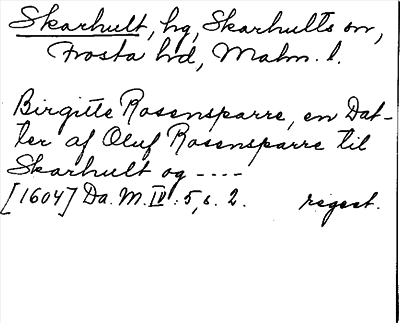 Skarhult, hg, Skarhults sn,
Frosta hd, Malm. l.
Birgitte Rosensparre, en Dat-
ter af Oluf Rosensparre til
Skarhult og ----
[1604] Da. M. IV: 5, s. 2. regest.